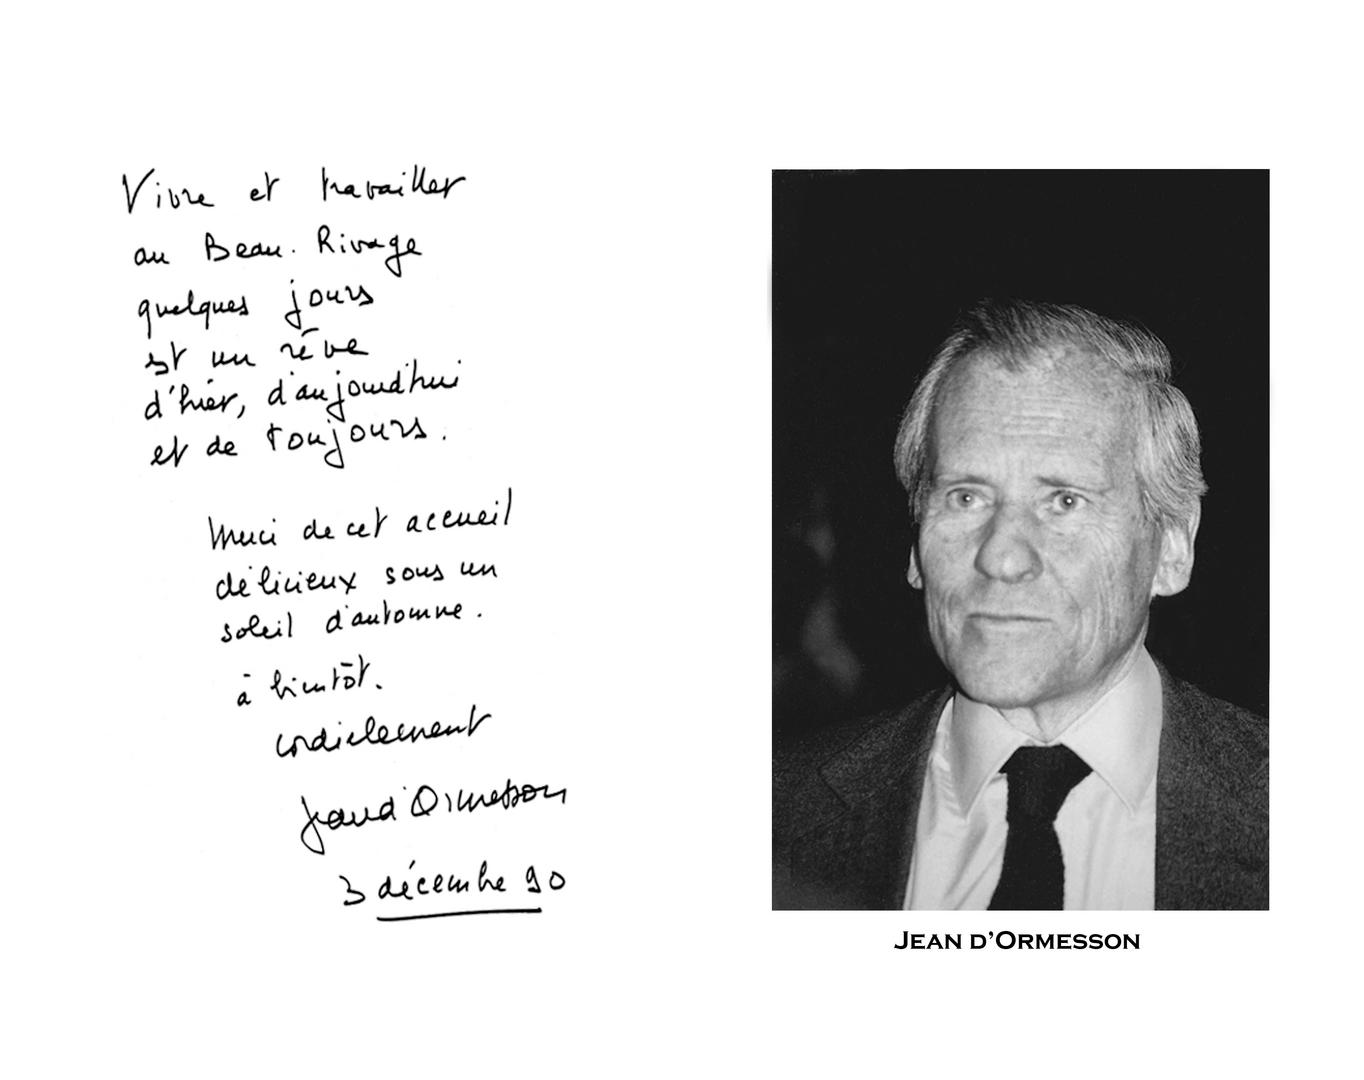 Vivre et travailler
au Beau. Rivage
quelques jours
est un rêve
d'hier, d'aujourd'hui
et de toujours.
Merci de cet accueil
délicieux sous un
soleil d'automne.
à bientôt.
cordialement
Jean d'Ormesson
3 décembre 90
JEAN D'ORMESSON